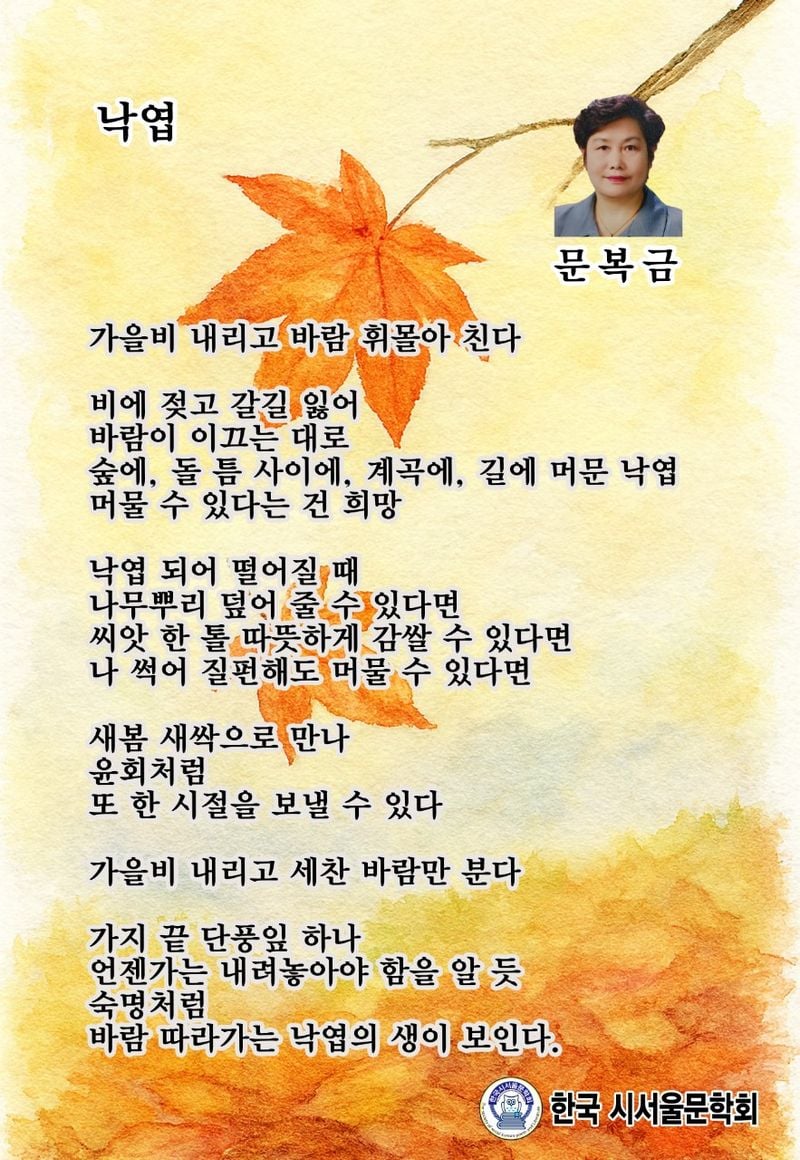 낙엽
문복금
가을비 내리고 바람 휘몰아 친다
비에 젖고 갈길 잃어
바람이 이끄는 대로
숲에, 돌 틈 사이에, 계곡에, 길에 머문 낙엽
머물 수 있다는 건 희망
낙엽 되어 떨어질 때
나무뿌리 덮어 줄 수 있다면
씨앗 한 톨 따뜻하게 감쌀 수 있다면
나 썩어 질펀해도 머물 수 있다면
새봄 새싹으로 만나
윤회처럼
또 한 시절을 보낼 수 있다
가을비 내리고 세찬 바람만 분다
가지 끝 단풍잎 하나
언젠가는 내려놓아야 함을 알 듯
숙명처럼
바람 따라가는 낙엽의 생이 보인다.
한국시서울문학회
한국 시서울문학회